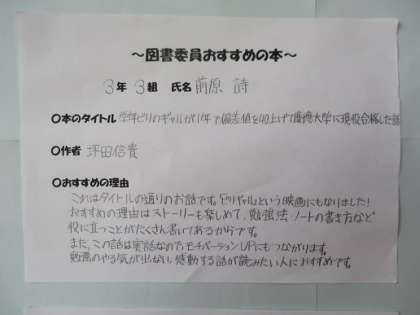 ～図書委員おすすめの本～
3年 3組 氏名 前原 詩
○本のタイトル 学年ビリのギャルが1年で偏差値を40上げて慶應大学に現役合格した話
○作者 坪田信貴
○おすすめの理由
これはタイトルの通りのお話です。「ビリギャル」という映画にもなりました!
おすすめの理由はストーリーも楽しめて、勉強法・ノートの書き方など
役に立つことがたくさん書いてあるからです。
また、この話は実話なのでモチベーションUPにもつながります。
勉強のやる気が出ない、感動する話が読みたい人におすすめです。